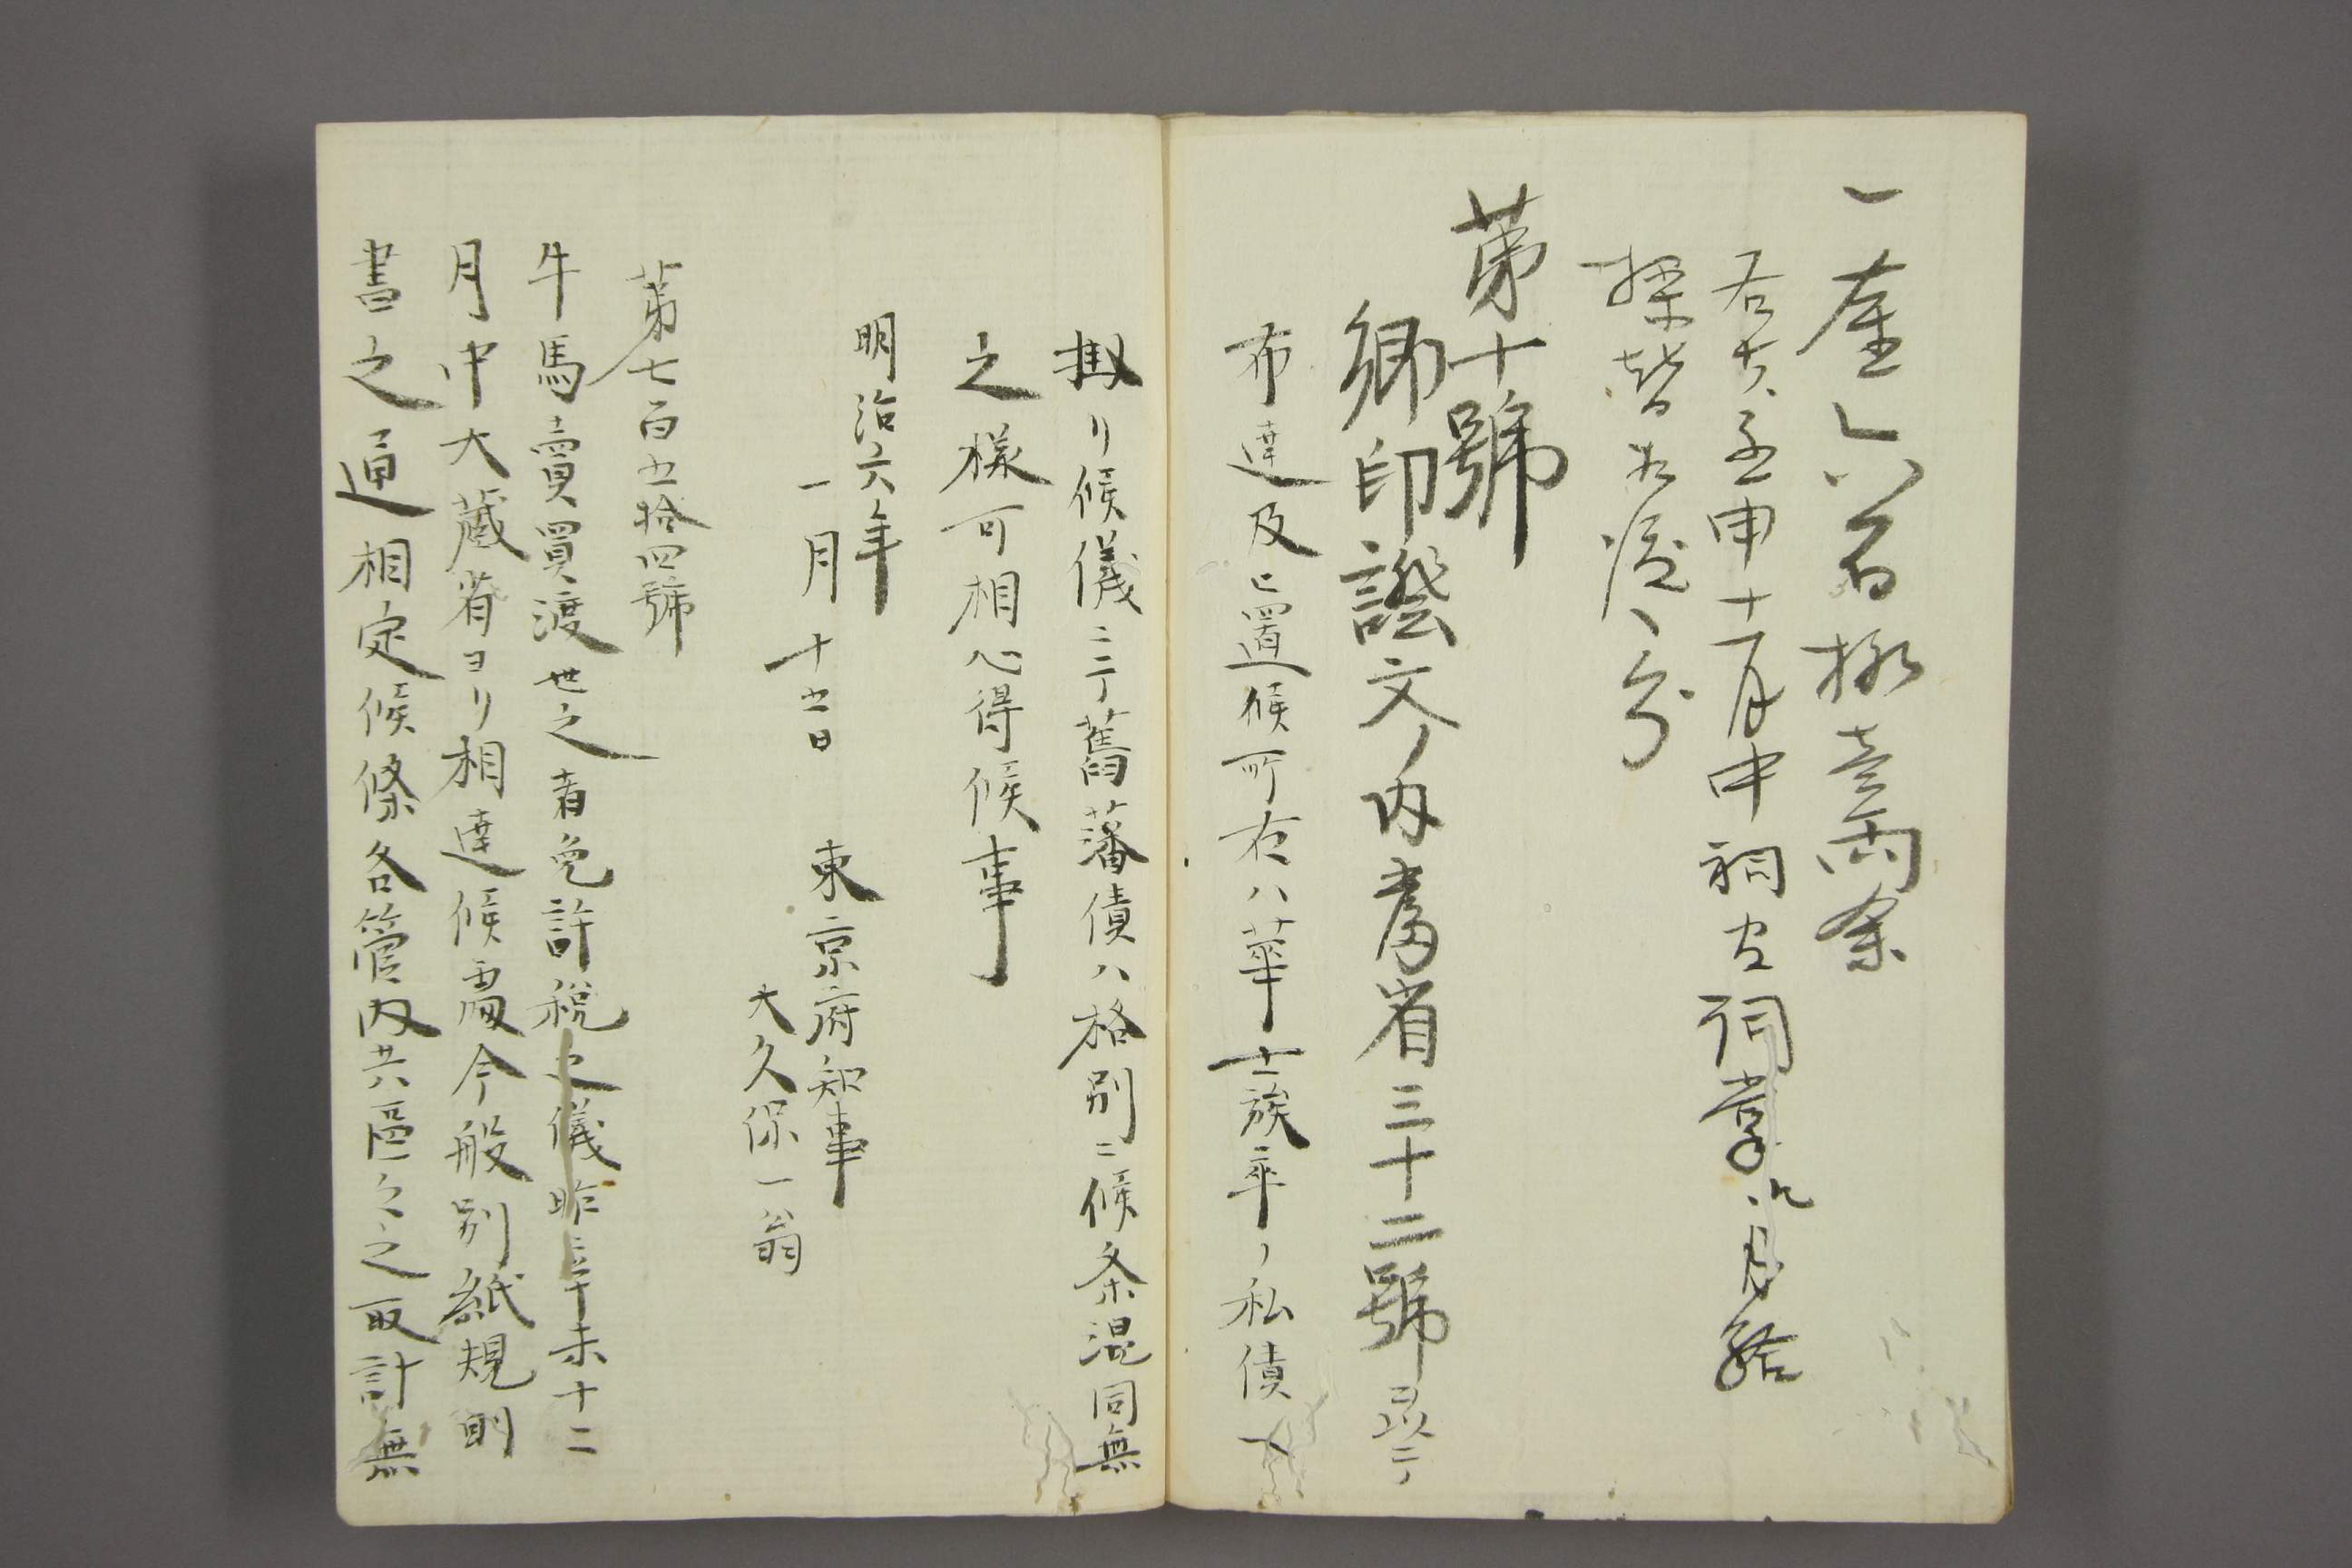 右者壬申十一月中祠官祠掌月給
操替相渡候分
第十號
御印證文ノ内當省三十二號ヲ以テ
布達及ヒ置候所右ハ華士族卒ノ私債ヘ
掛リ候儀ニテ舊藩債ハ格別ニ候条混同無
之樣可相心得候事
明治六年
一月十五日
東京府知事
大久保一翁
第七百五拾四號
牛馬賣買渡世之者免許税之儀昨辛未十二
月中大蔵省ヨリ相達候處今般別紙規則
書之通相定候條各管内共區々之取計無